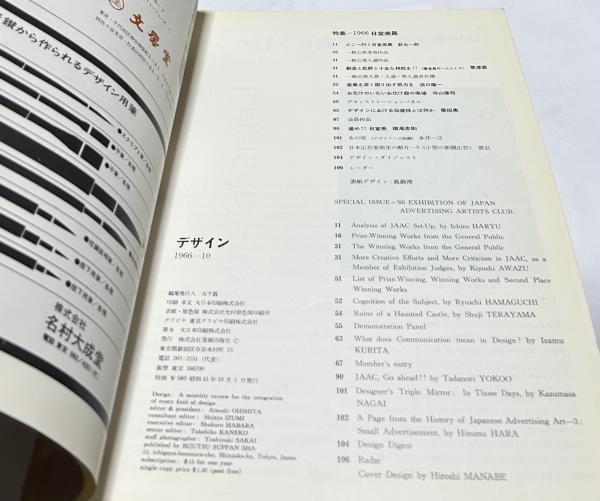 文房堂
鑚から作られるデザイン用筆
株式会社
名村大成堂
デザイン
1966—10
編集発行人 大下敦
印刷 本文 大日本印刷株式会社
表紙・原色版 株式会社光村原色版印刷所
グラビヤ 東京グラビヤ印刷株式会社
製本 大日本印刷株式会社
発行 株式会社美術出版社 ©
東京都新宿区市谷本村町 15
電話 260. 2151 (代表)
振替 東京 166700
特価 ¥ 580 昭和 41 年 10 月 1 日発行
Design: A monthly review for the integration
of every field of design
editor & president: Atsushi OHSHITA
consultant editor: Shinya IZUMI
executive editor: Shukuro HABARA
senior editor: Takahiko KANEKO
staff photographer: Yoshiyuki SAKAI
published by BIJUTSU SUPPAN SHA
15, ichigaya-honmura-cho, Shinjuku-ku, Tokyo, Japan
subscription: $ 15 for one year
single copy price $1.50 (post free)
特集＝1966 日宣美展
11 どこへ行く日宣美展 針生一郎
16 一般公募受賞作品
31 一般公募入選作品
31 創造と批評と十全な相剋を!! 粟津潔
51 一般公募入賞・入選・準入選者名簿
52 産業を深く掘り出す努力を 浜口隆一
54 お化けのいないお化け屋敷の廃墟 寺山修司
55 デモンストレーションパネル
63 デザインにおける伝達性とは何か 栗田勇
67 会員作品
90 進め!! 日宣美 横尾忠則
101 あの頃 永井一正
102 日本広告美術史の断片—3 原弘
104 デザイン・ダイジェスト
106 レーダー
表紙デザイン：真鍋博
SPECIAL ISSUE='66 EXHIBITION OF JAPAN
ADVERTISING ARTISTS CLUB
11 Analysis of JAAC Set-Up, by Ichiro HARYU
16 Prize-Winning Works from the General Public
31 The Winning Works from the General Public
31 More Creative Efforts and More Criticism in JAAC, as a
Member of Exhibition Judges, by Kiyoshi AWAZU
51 List of Prize-Winning, Winning Works and Second Place
Winning Works
52 Cognition of the Subject, by Ryuichi HAMAGUCHI
54 Ruins of a Haunted Castle, by Shuji TERAYAMA
55 Demonstration Panel
63 What does Communication mean in Design? by Isamu
KURITA
67 Member's entry
90 JAAC, Go ahead!! by Tadanori YOKOO
101 Designer's Triple Mirror: In Those Days, by Kazumasa
NAGAI
102 A Page from the History of Japanese Advertising Art—3:
Small Advertisement, by Hiromu HARA
104 Design Digest
106 Radar
Cover Design by Hiroshi MANABE